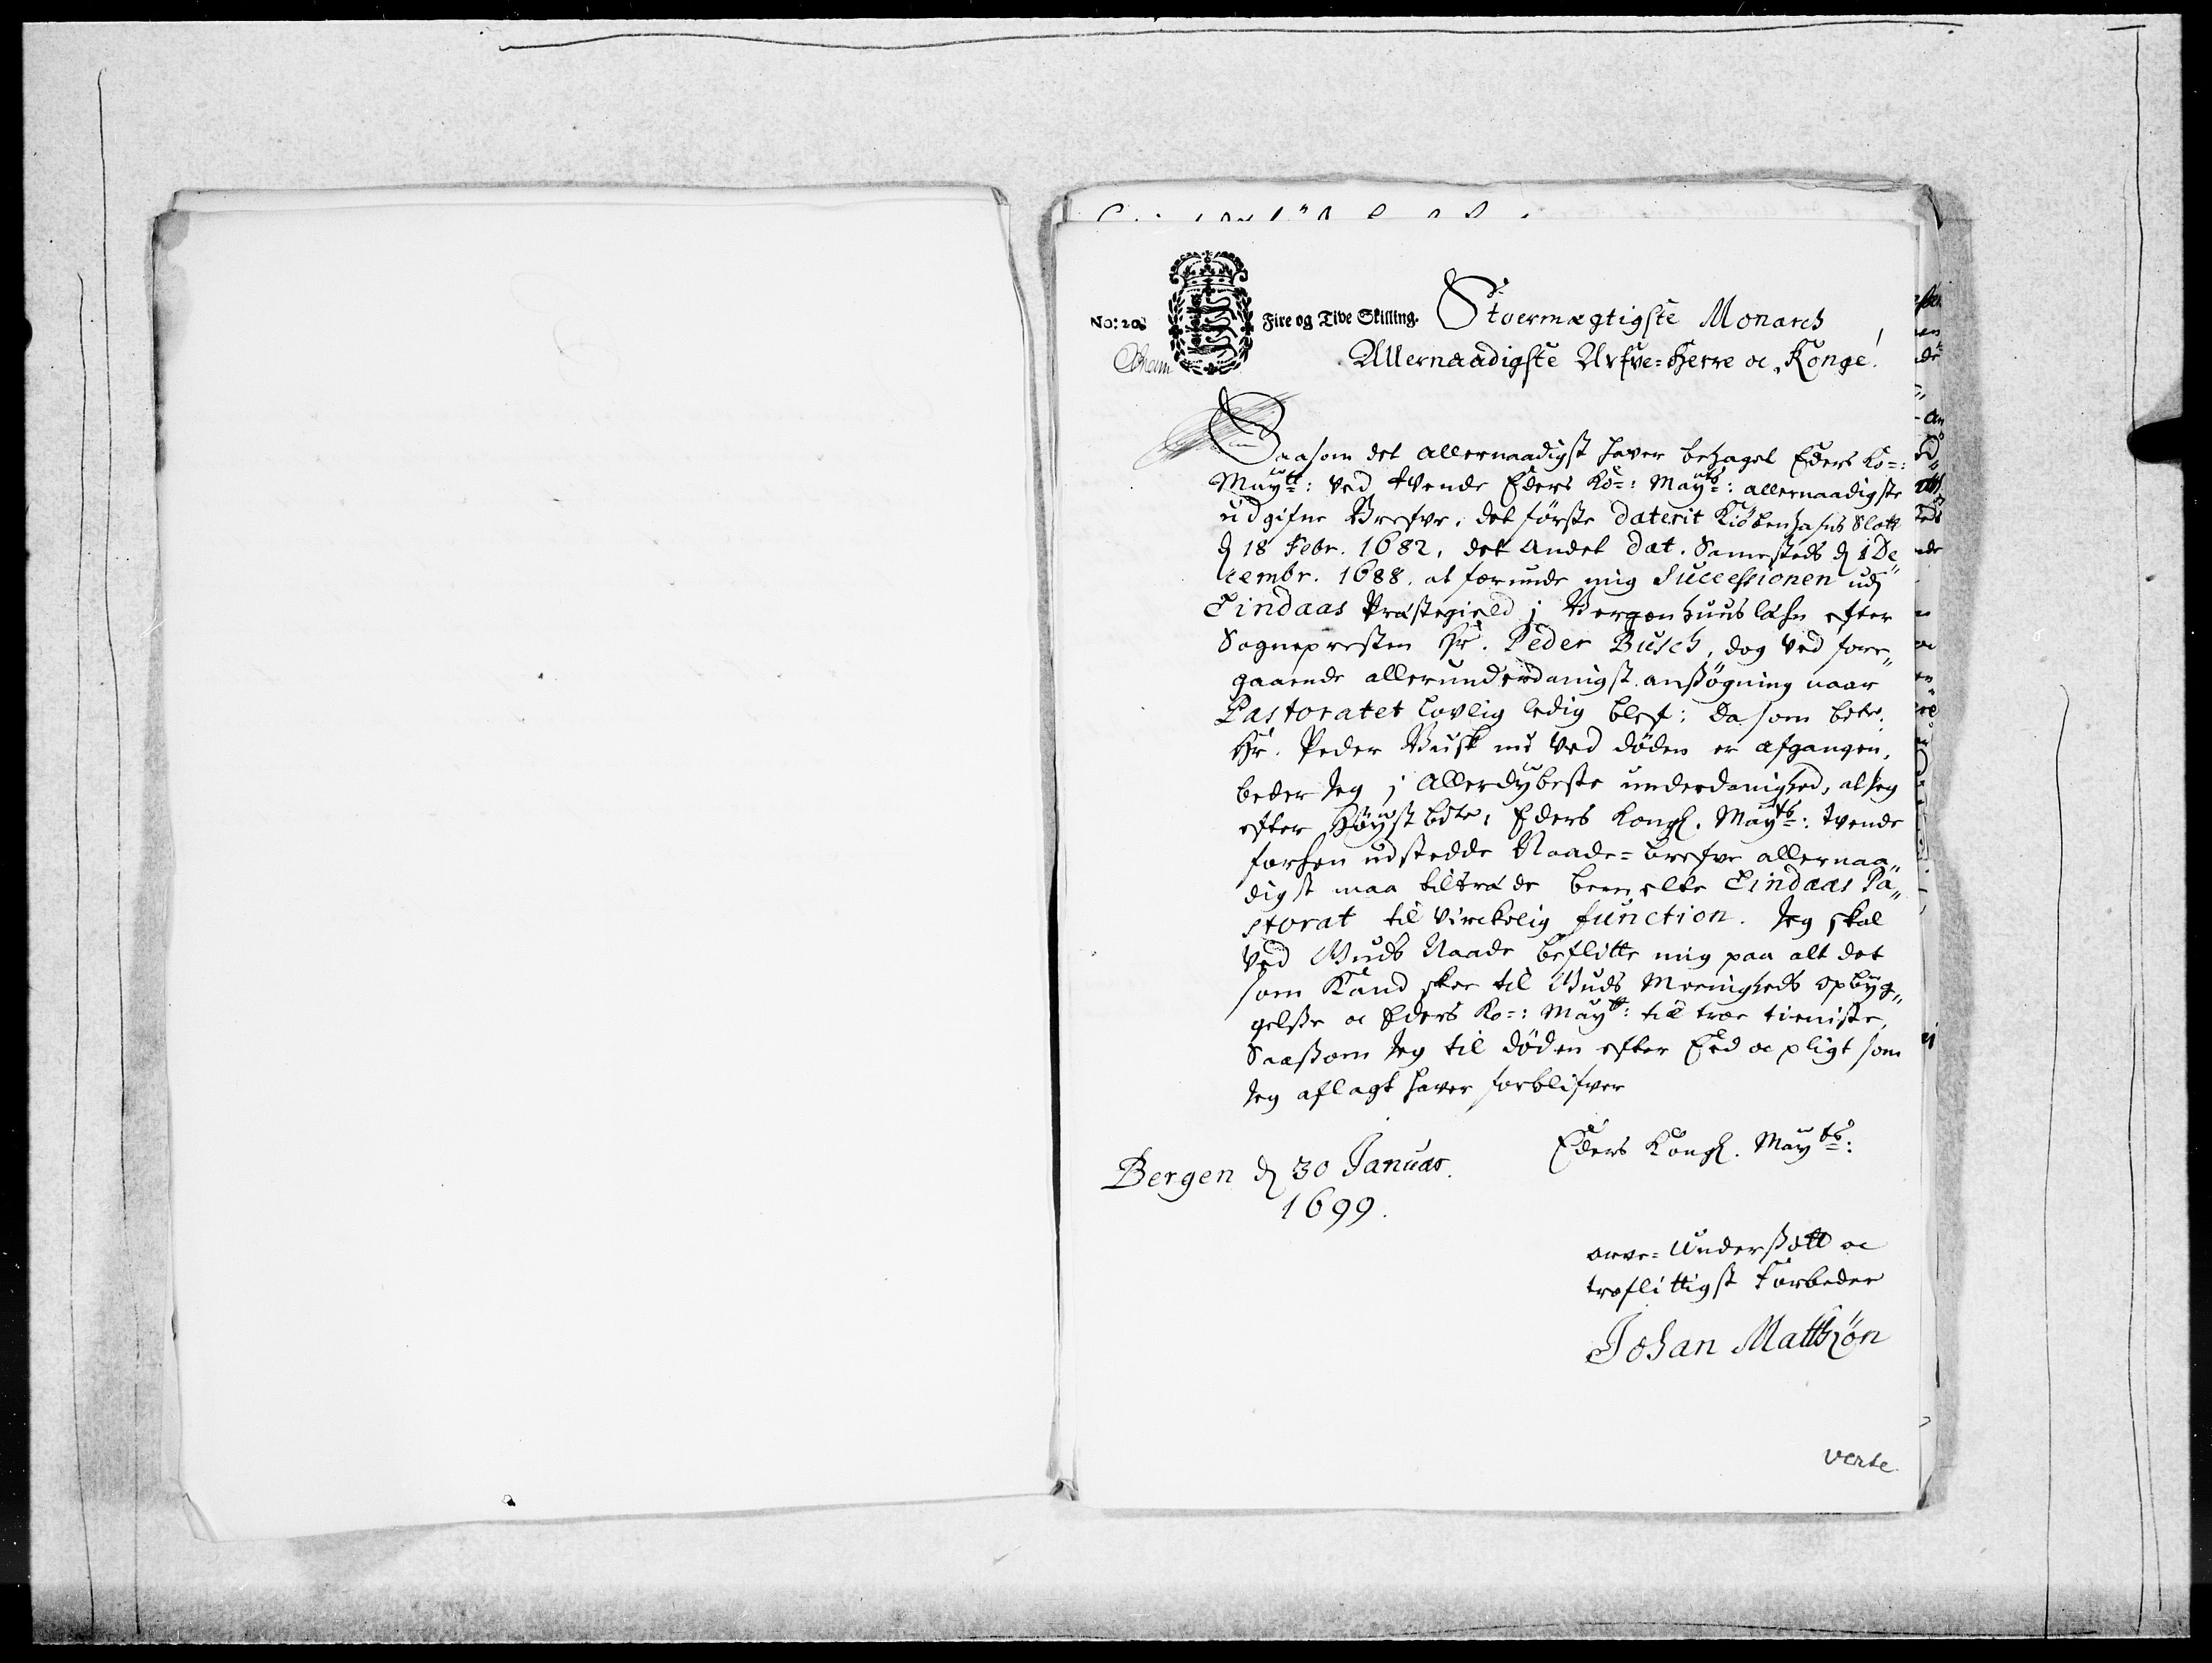 No: 20. Fire og Tive Skilling. Stoermægtigste Monarch
Allernaadigste Arfve=Herre oc Konge!
Saasom det allernaadigst hafver behaget Eders Ko=:
Maytt: ved tvende Eders Ko=: Mayts: allernaadigste
udgifne Brefve, det første daterit Kiøbenhafns Slott
d 18 Febr. 1682, det andet dat. Samesteds d 1 De„
cembr. 1688. at forunde mig Successionen udj
Lindaas Præstegield j Bergenhuus læhn efter
Sognepresten Hr. Peder Busch, dog ved fore„
gaaende allerunderdanigst ansøgning naar
Pastoratet lovlig ledig blef: Da som bete.
Hr. Peder Busk nu ved døden er afgangen,
beder Jeg j Allerdybeste underdanighed, at Jeg
efter Høyst bete: Eders Kongl. Mayts: tvende
forhen udstedde Naade=brefve allernaa„
digst maa tiltræde bemelte Lindaas Pa„
storat til virckelig function. Jeg skal
ved Guds Naade beflitte mig paa alt det
som Kand skee til Guds Meenigheds opbyg„
gelsse oc Eders Ko=: Maytt: til troe tieniste,
Saassom Jeg til døden efter Eed oc pligt som
Jeg aflagt hafver forblifver
Eders Kongl. Mayts:
Bergen d 30 Januar.
1699.
arve=Underssått oc
troflittigst Forbeder
Johan Matthsøn
verte